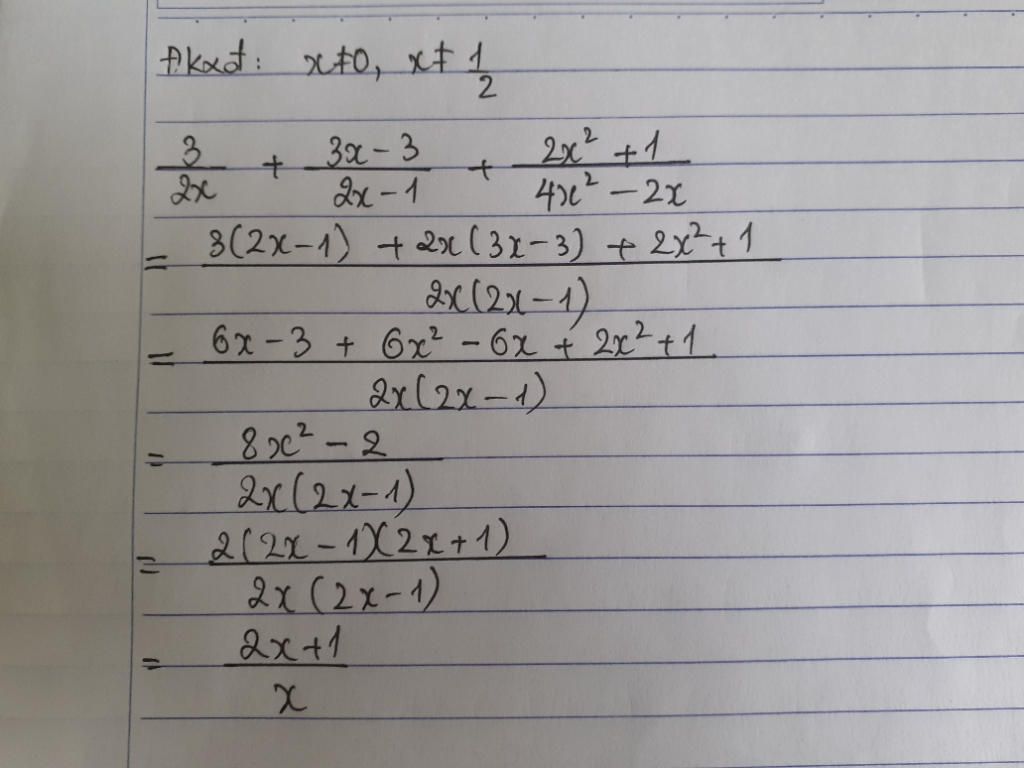 Đkxđ: x≠0, x≠ 1/2
3/2x + 3x-3/2x-1 + 2x²+1/4x²-2x
= 3(2x-1) + 2x(3x-3) + 2x²+1/2x(2x-1)
= 6x-3 + 6x²-6x + 2x²+1/2x(2x-1)
= 8x²-2/2x(2x-1)
= 2(2x-1)(2x+1)/2x(2x-1)
= 2x+1/x